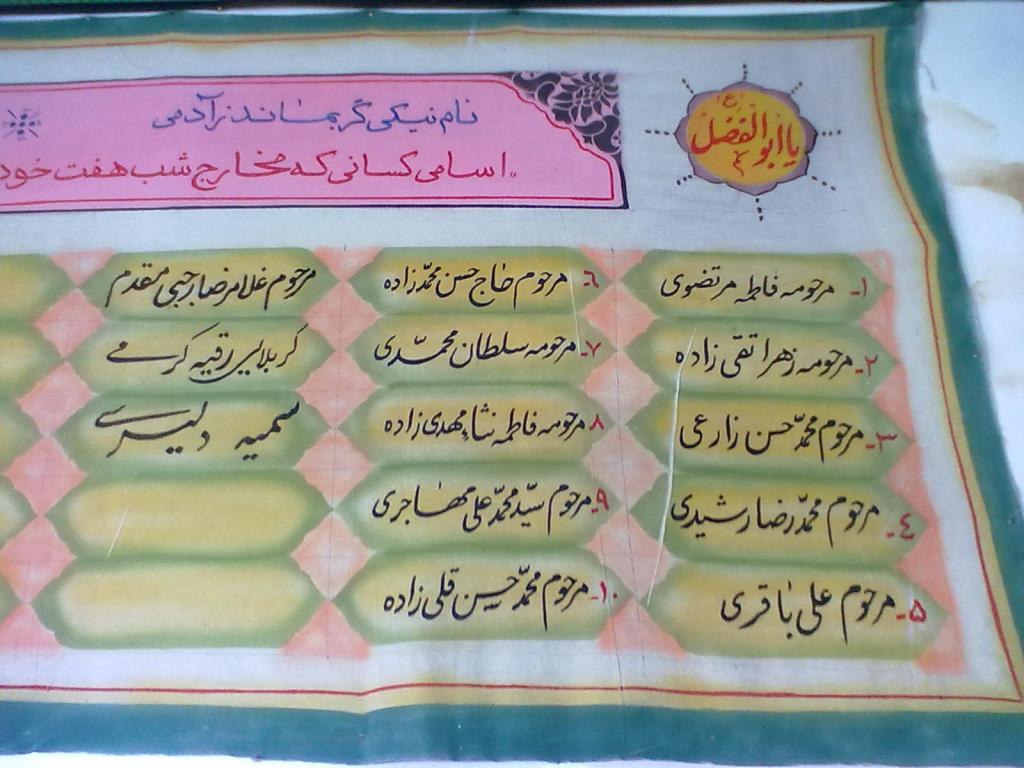 یا ابوالفضل
ع
نام نیکی گر بماند ز آدمی
اسامی کسانی که مخارج شب هفت خود
۱- مرحومه فاطمه مرتضوی
۲- مرحومه زهرا تقی زاده
۳- مرحوم محمّد حسن زارعی
٤- مرحوم محمّدرضا رشیدی
۵- مرحوم علی باقری
٦- مرحوم حاج حسن محمّدزاده
۷- مرحومه سلطان محمّدی
۸ مرحومه فاطمه نشاء مهدی زاده
۹- مرحوم سیّد محمّد علی مهاجری
۱۰- مرحوم محمّد حسین قلی زاده
مرحوم غلامرضا رجبی مقدم
کربلایی رقیه کرمی
سمیه دلیری